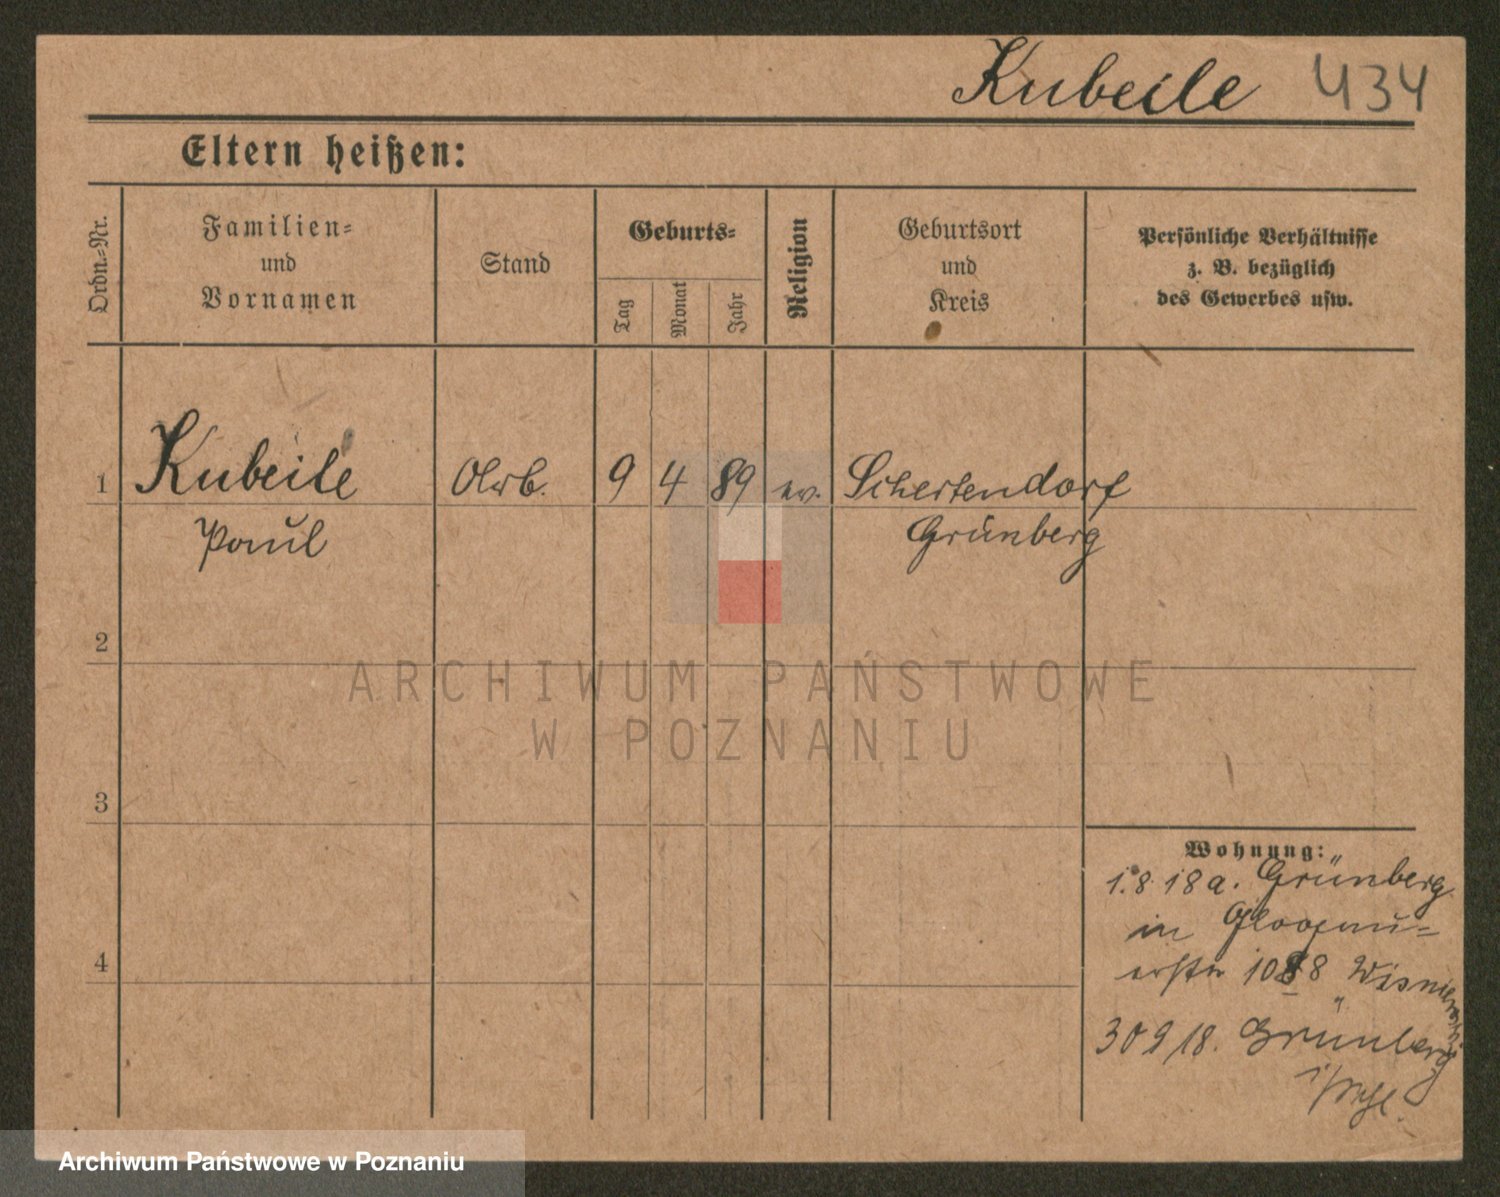 Kubeile 434
Eltern heißen:
Ordn.-Nr.
Familien-
und
Vornamen
Stand
Geburts-
Tag
Monat
Jahr
Religion
Geburtsort
und
Kreis
Persönliche Verhältnisse
z. B. bezüglich
des Gewerbes usw.
1 Kubeile 9 4 89 ev. Schertendorf
Paul Grünberg
2
3
4
Wohnung:
1.8.18 a. Grünberg
in
10
30 9 18. Grünberg
i/Schl.
ARCHIWUM PAŃSTWOWE
W POZNANIU
Archiwum Państwowe w Poznaniu